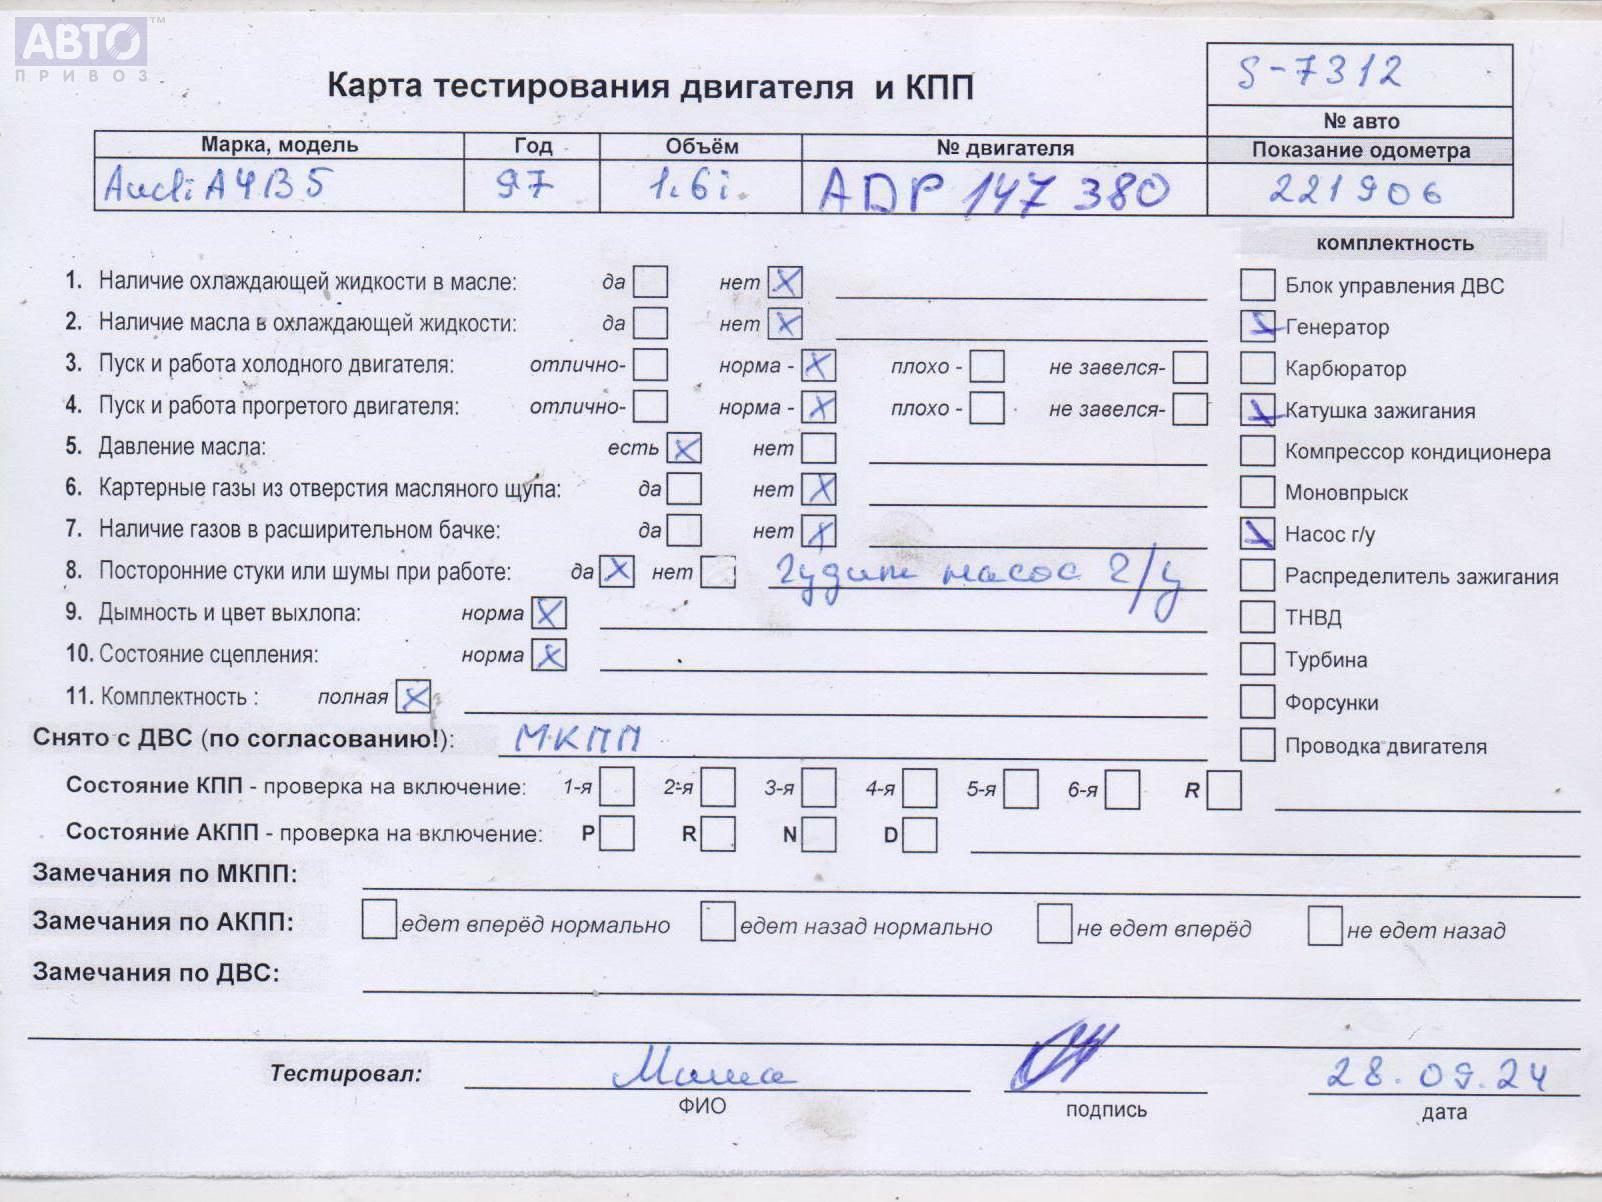 АВТО™
ПРИВОЗ
S-7312
Карта тестирования двигателя и КПП
№ авто
Марка, модель Год Объём № двигателя Показание одометра
Audi A4B5 97 1.6i. ADP 147 380 221906
комплектность
1. Наличие охлаждающей жидкости в масле: да нет X Блок управления ДВС
2. Наличие масла в охлаждающей жидкости: да нет X Генератор
3. Пуск и работа холодного двигателя: отлично- норма - X плохо - не завелся- Карбюратор
4. Пуск и работа прогретого двигателя: отлично- норма - X плохо - не завелся- Катушка зажигания
5. Давление масла: есть X нет Компрессор кондиционера
6. Картерные газы из отверстия масляного щупа: да нет X Моновпрыск
7. Наличие газов в расширительном бачке: да нет X Насос г/у
8. Посторонние стуки или шумы при работе: да X нет Гудит насос г/у Распределитель зажигания
9. Дымность и цвет выхлопа: норма X ТНВД
10. Состояние сцепления: норма X Турбина
11. Комплектность : полная X Форсунки
Снято с ДВС (по согласованию!): МКПП Проводка двигателя
Состояние КПП - проверка на включение: 1-я 2-я 3-я 4-я 5-я 6-я R
Состояние АКПП - проверка на включение: P R N D
Замечания по МКПП:
Замечания по АКПП: едет вперёд нормально едет назад нормально не едет вперёд не едет назад
Замечания по ДВС:
Тестировал: Миша 28.09.24
ФИО подпись дата